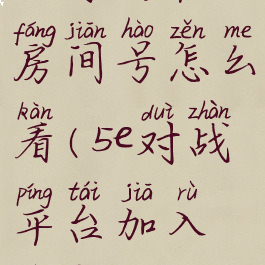 fáng jiān hào zěn me
房间号怎么
kàn duì zhàn
看(5e对战
píng tái jiā rù
平台加入